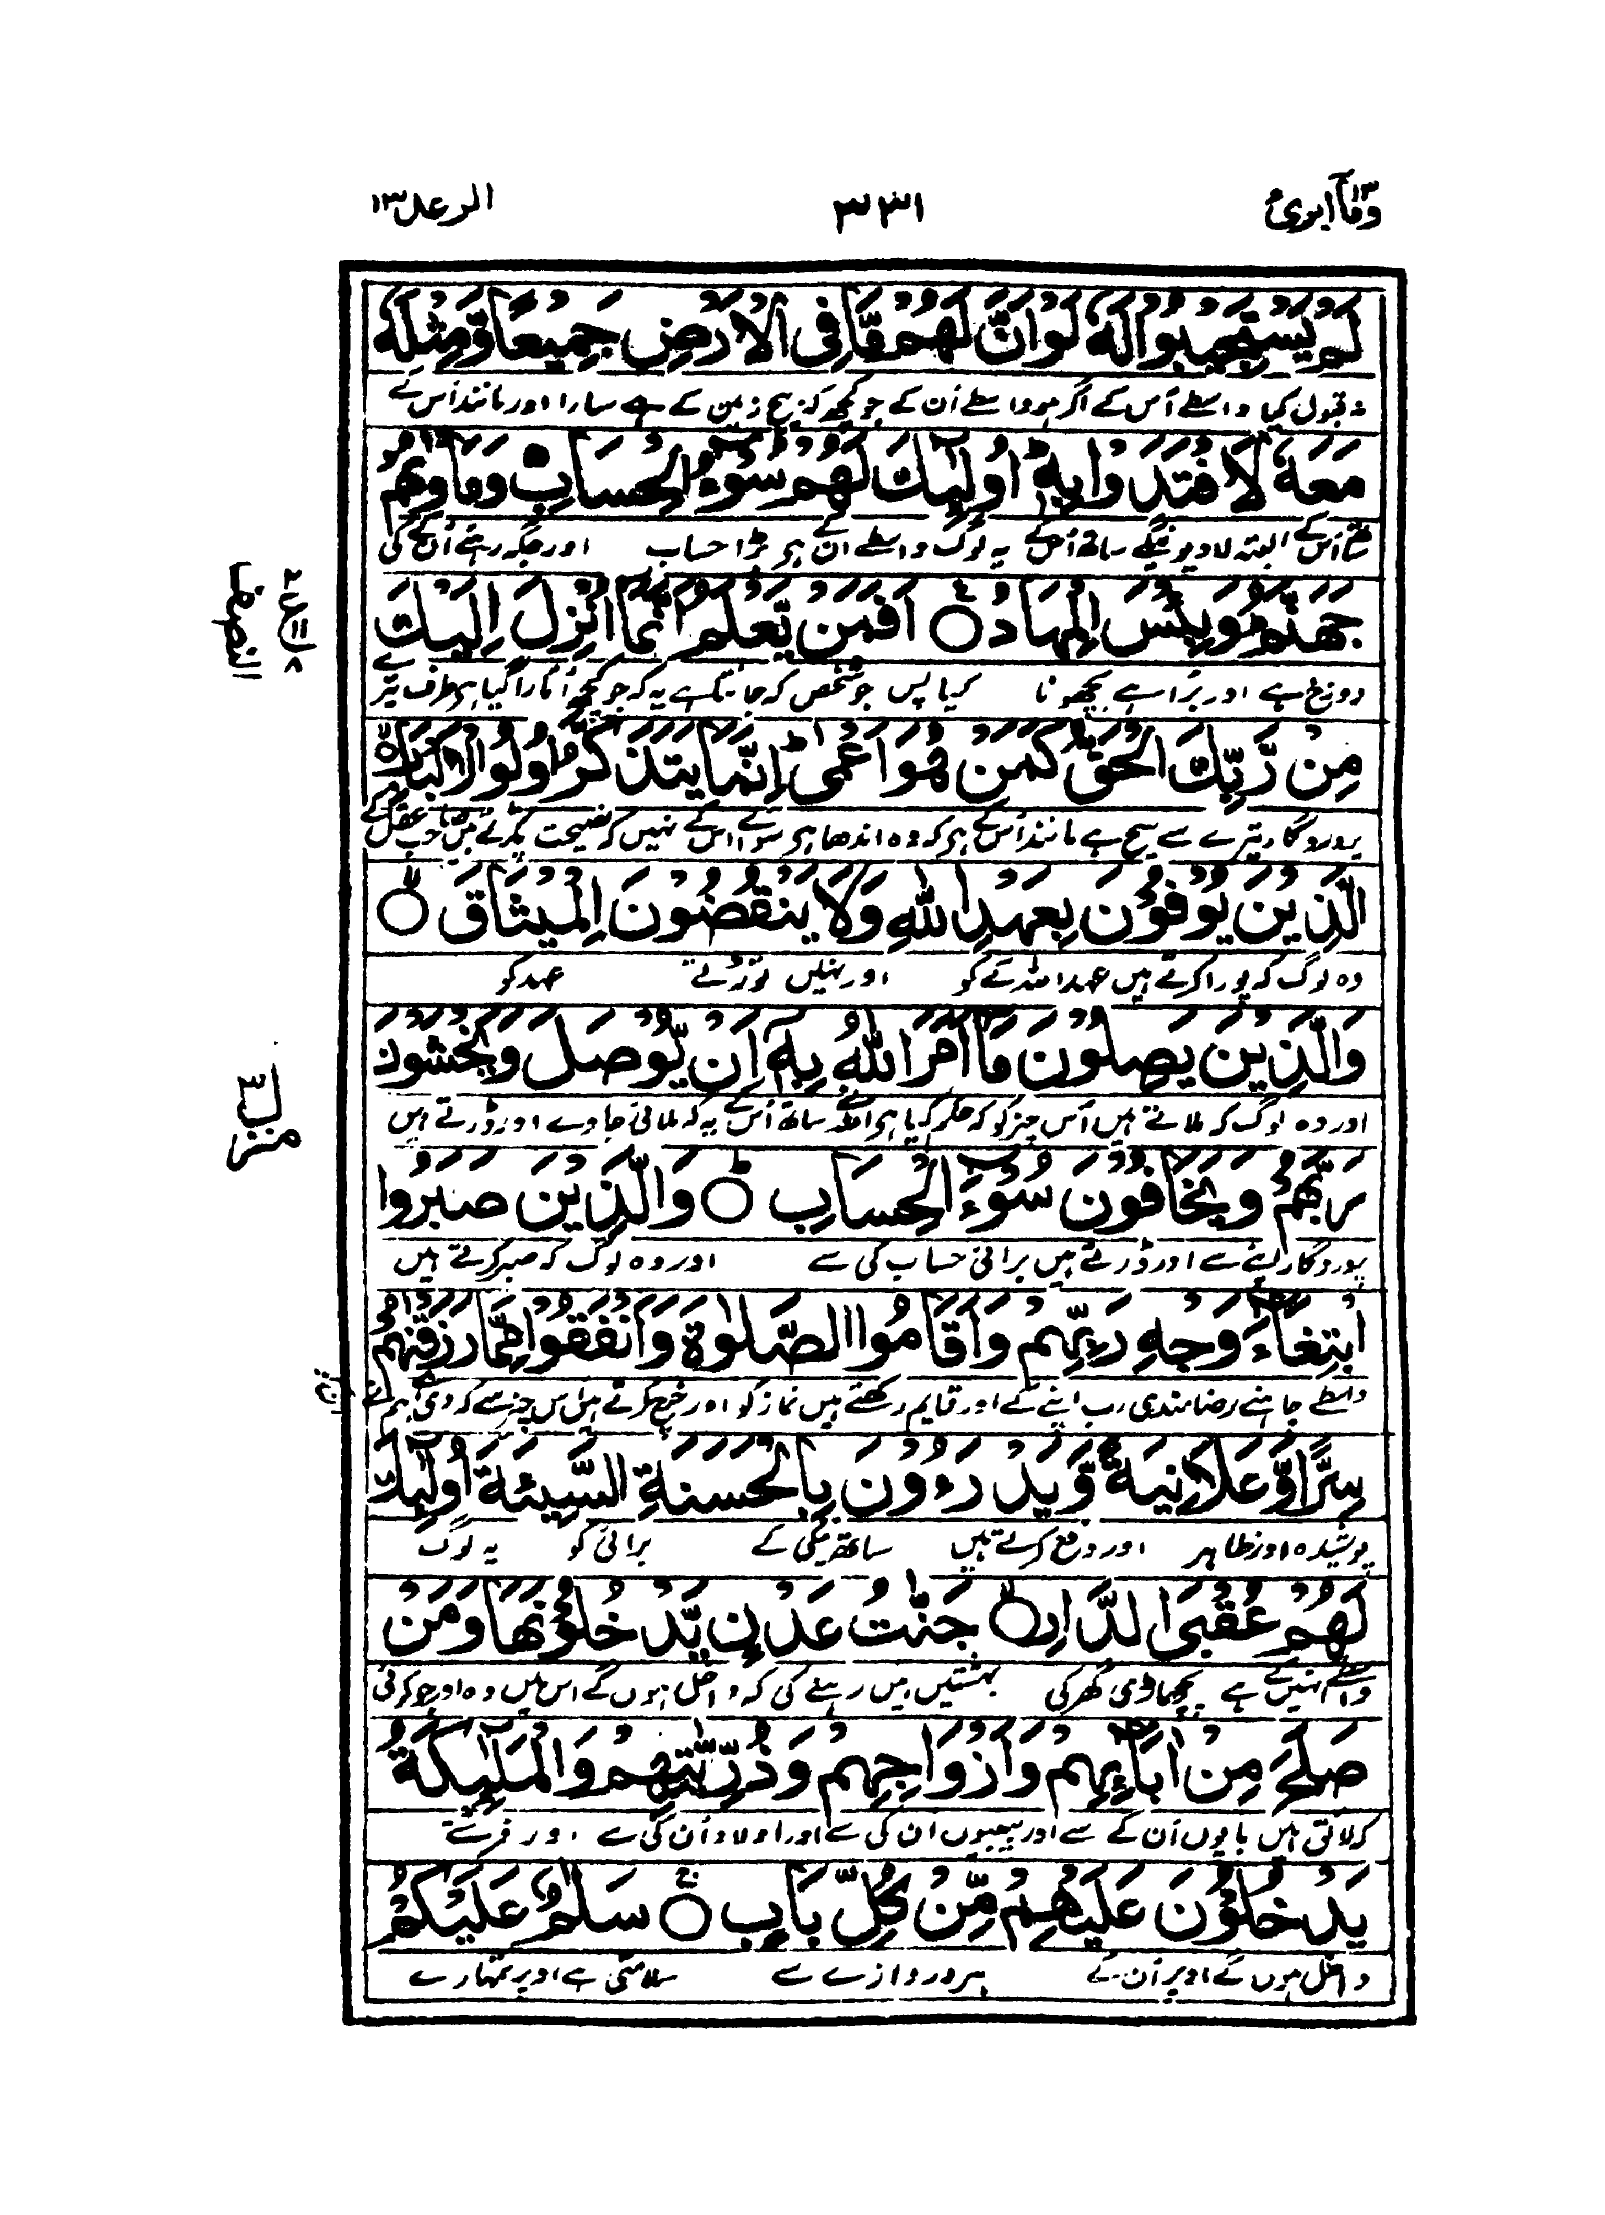 وَمَآ اُبَرِّئُ ١٣
٣٣١
الرعد ١٣
لَمْ يَسْتَجِيْبُوْا لَهٗ لَوْ اَنَّ لَهُمْ مَّا فِى الْاَرْضِ جَمِيْعًا وَّمِثْلَهٗ
نہ قبول کیا واسطے اُس کے اگر ہو واسطے اُن کے جو کچھ کہ بیچ زمین کے ہے سارا اور مانند اُس کے
مَعَهٗ لَافْتَدَوْا بِهٖ ؕ اُولٰٓئِكَ لَهُمْ سُوْٓءُ الْحِسَابِ وَمَاْوٰىهُمْ
ساتھ اُس کے البتہ لا دیویں گے ساتھ اُس کے یہ لوگ واسطے ان کے ہے بڑا حساب اور جگہ رہنے اُن کے کی
جَهَنَّمُ ؕ وَبِئْسَ الْمِهَادُ ○ اَفَمَنْ يَّعْلَمُ اَنَّمَآ اُنْزِلَ اِلَيْكَ
دوزخ ہے اور بُرا ہے بچھونا کیا پس جو شخص کہ جانتا ہے یہ کہ جو کچھ اُتارا گیا ہے طرف تیرے
مِنْ رَّبِّكَ الْحَقُّ كَمَنْ هُوَ اَعْمٰى ؕ اِنَّمَا يَتَذَكَّرُ اُولُوا الْاَلْبَابِ
پروردگار تیرے سے سچ ہے مانند اُس کے ہے کہ وہ اندھا ہے سوائے اس کے نہیں کہ نصیحت پکڑتے ہیں صاحب عقل کے
الَّذِيْنَ يُوْفُوْنَ بِعَهْدِ اللّٰهِ وَلَا يَنْقُضُوْنَ الْمِيْثَاقَ ○
وہ لوگ کہ پورا کرتے ہیں عہد اللہ کے کو اور نہیں توڑتے عہد کو
وَالَّذِيْنَ يَصِلُوْنَ مَآ اَمَرَ اللّٰهُ بِهٖٓ اَنْ يُّوْصَلَ وَيَخْشَوْنَ
اور وہ لوگ کہ ملاتے ہیں اُس چیز کو کہ حکم کیا ہے اللہ نے ساتھ اُس کے یہ کہ ملائی جاوے اور ڈرتے ہیں
رَبَّهُمْ وَيَخَافُوْنَ سُوْٓءَ الْحِسَابِ ○ؕ وَالَّذِيْنَ صَبَرُوا
پروردگار اپنے سے اور ڈرتے ہیں برائی حساب کی سے اور وہ لوگ کہ صبر کرتے ہیں
ابْتِغَآءَ وَجْهِ رَبِّهِمْ وَاَقَامُوا الصَّلٰوةَ وَاَنْفَقُوْا مِمَّا رَزَقْنٰهُمْ
واسطے چاہنے رضامندی رب اپنے کے اور قایم رکھتے ہیں نماز کو اور خرچ کرتے ہیں اس چیز سے کہ دی ہے ہم نے
سِرًّا وَّعَلَانِيَةً وَّيَدْرَءُوْنَ بِالْحَسَنَةِ السَّيِّئَةَ اُولٰٓئِكَ
پوشیدہ اور ظاہر اور دفع کرتے ہیں ساتھ نیکی کے برائی کو یہ لوگ
لَهُمْ عُقْبَى الدَّارِ ○ جَنّٰتُ عَدْنٍ يَّدْخُلُوْنَهَا وَمَنْ
واسطے انہیں کے ہے پچھاڑی گھر کی بہشتیں ہیں رہنے کی کہ داخل ہوں گے اس میں وہ اور جو کوئی
صَلَحَ مِنْ اٰبَآئِهِمْ وَاَزْوَاجِهِمْ وَذُرِّيّٰتِهِمْ وَالْمَلٰٓئِكَةُ
کہ لائق ہیں باپوں اُن کے سے اور بیبیوں ان کی سے اور اولاد اُن کی سے اور فرشتے
يَدْخُلُوْنَ عَلَيْهِمْ مِّنْ كُلِّ بَابٍ ○ سَلٰمٌ عَلَيْكُمْ
داخل ہوں گے اوپر اُن کے ہر دروازے سے سلامتی ہے اوپر تمہارے
النصف
منزل ٣